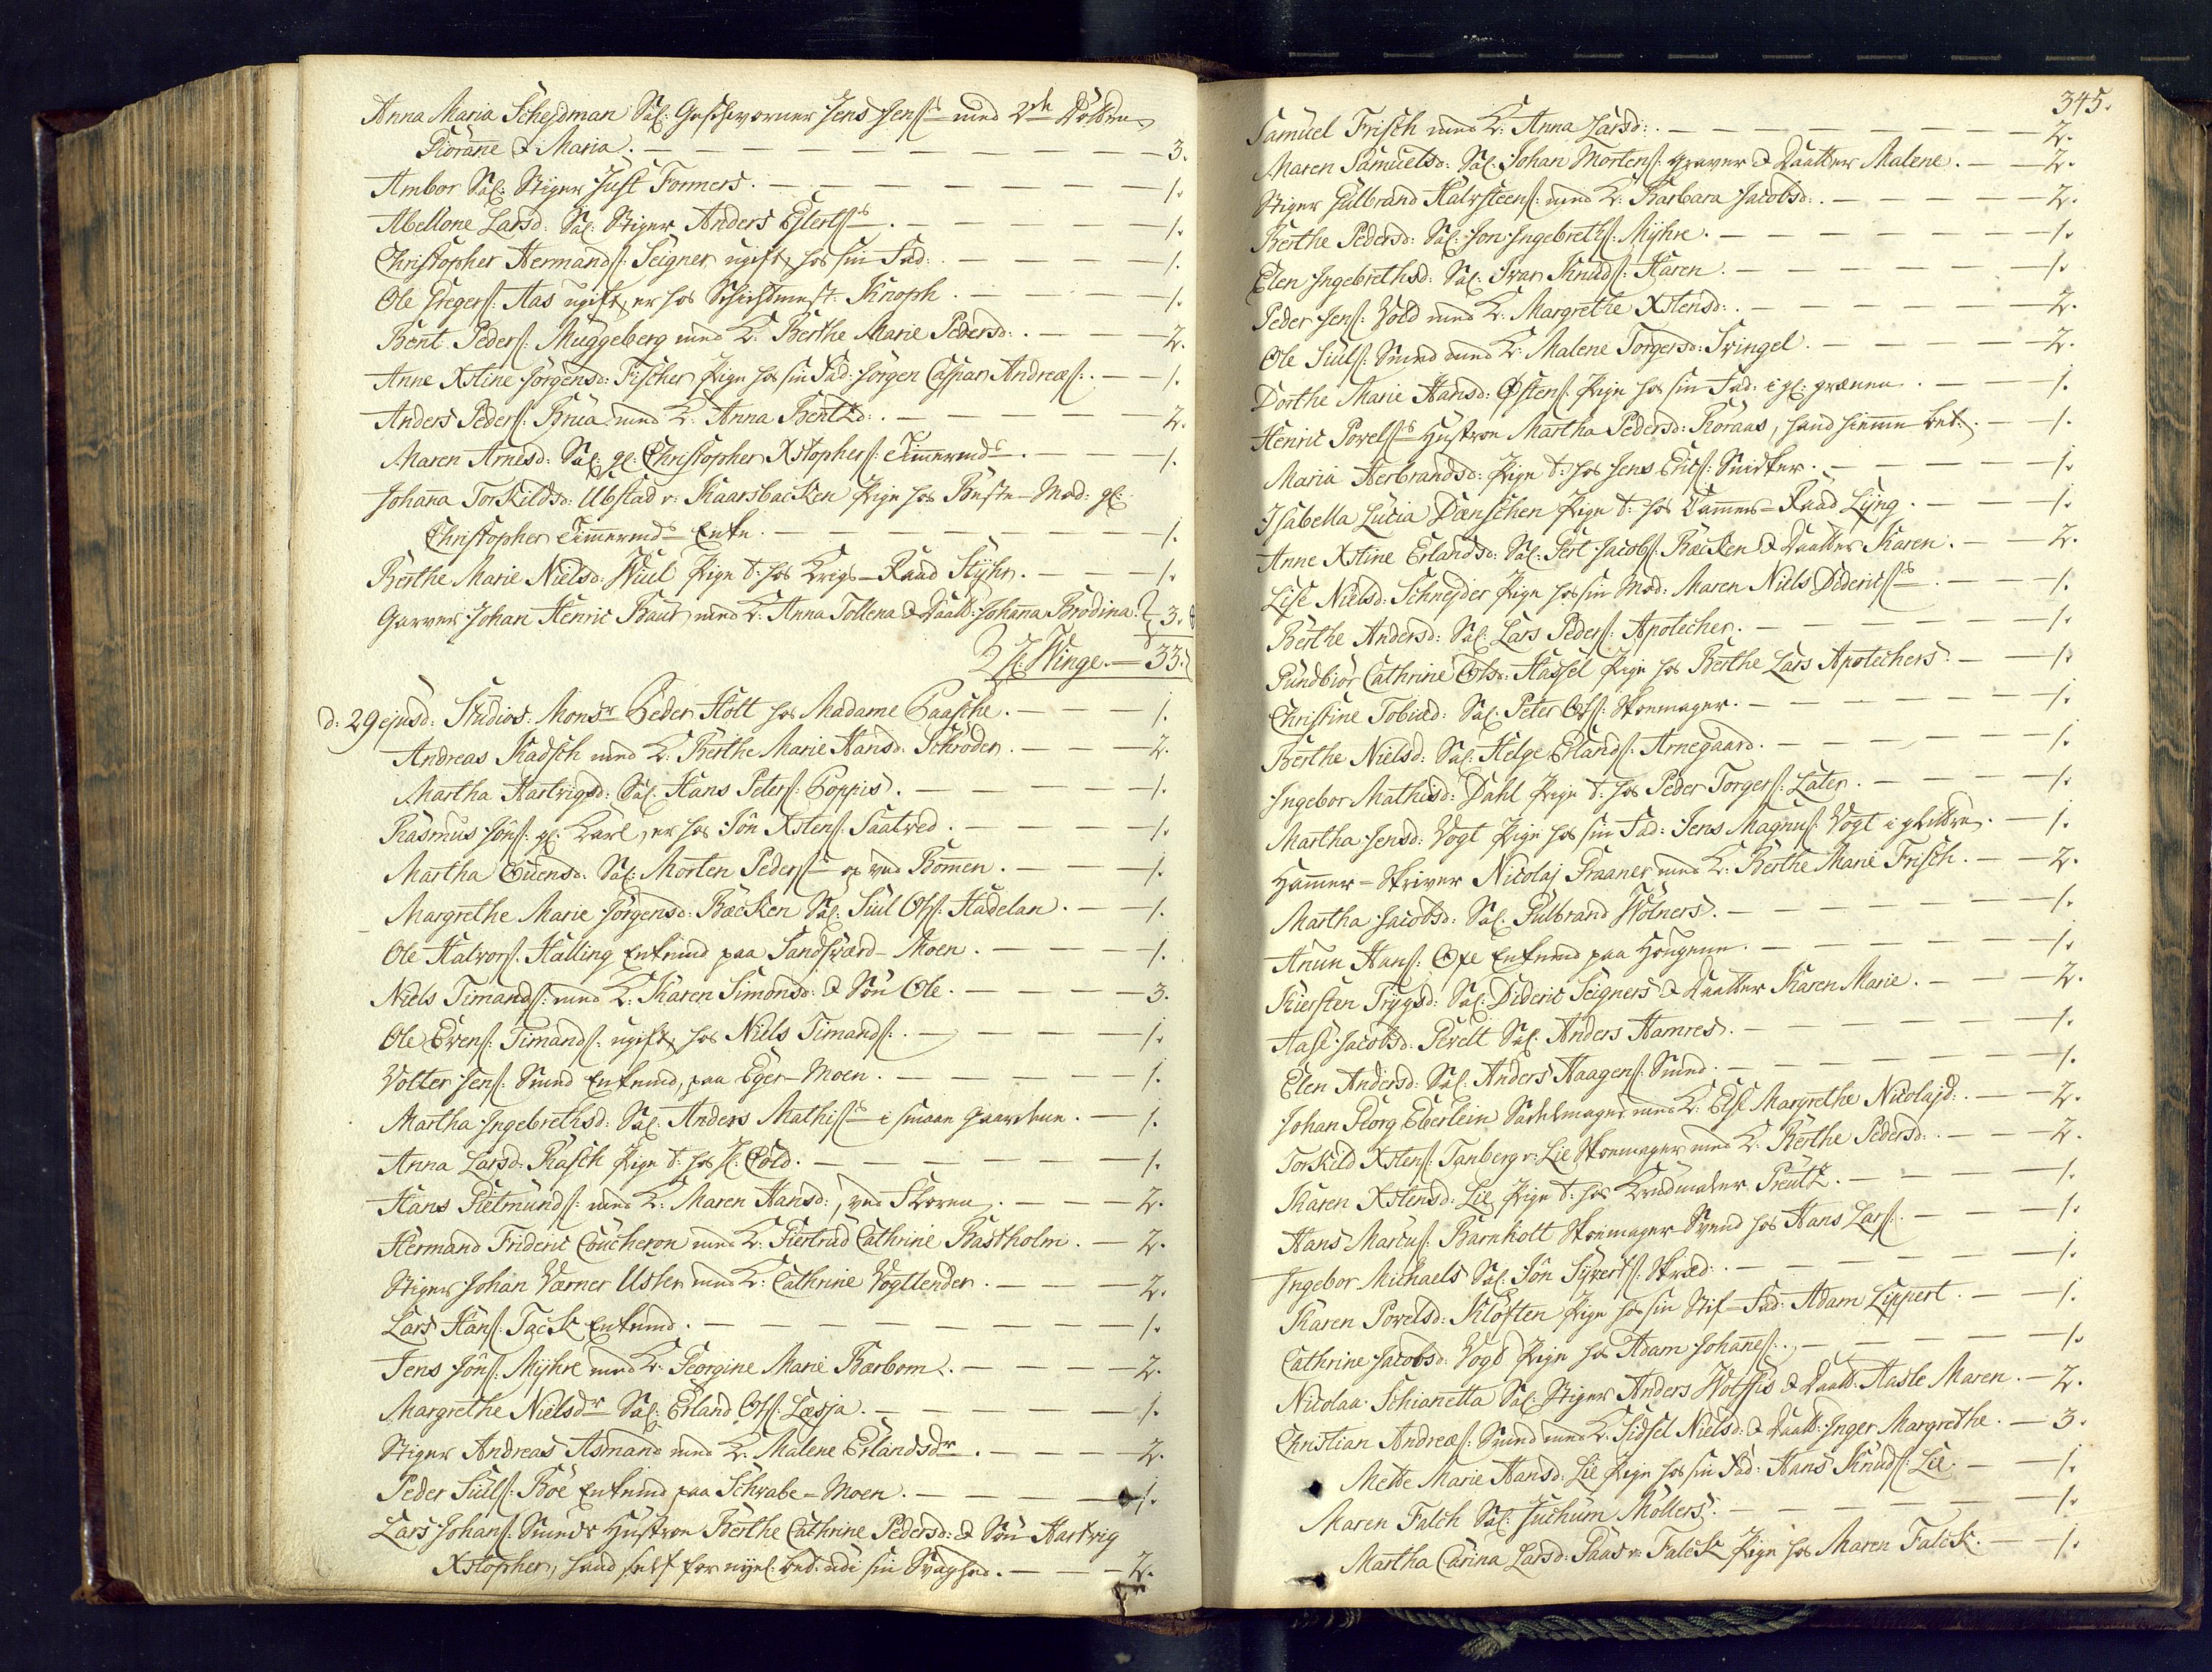 Anna Maria Schejdman Sal: Geschworner Jens Jens: med 2de Døttre
Giørane & Maria. — 3.
Ambor Sal: Stiger Just Formers. — 1.
Abellone Larsd: Sal: Stiger Anders Ejlerts: — 1.
Christopher Hermands: Seigner ugift, hos sin Fad: — 1.
Ole Gregers: Aas ugift, er hos Schichtmest: Knoph. — 1.
Bent Peders: Muggeberg med K: Berthe Marie Pedersd: — 2.
Anne Xstine Jørgensd: Fischer Pige hos sin Fad: Jørgen Caspar Andreæs: — 1.
Anders Peders: Brua med K: Anna Bentzd: — 2.
Maren Arnesd: Sal: gl: Christopher Xstophers: Timermds — 1.
Johana Torkildsd: Ubstad v: Kaarsbacken Pige hos Beste-Mod: gl:
Christopher Timermds Enke. — 1.
Berthe Marie Nielsd: Wiul Pige t: hos Krigs-Raad Stÿhr. — 1.
Garver Johan Henric Baur med K: Anna Tollena & Daatt: Johana Brodina. 3.
Hr: Winge. — 33.
d: 29 ejusd: Studios: Monsr Peder Holt hos Madame Paasche. — 1.
Andreas Kadsch med K: Berthe Marie Hansd: Schrøder. — 2.
Martha Hartvigsd: Sal: Hans Peters: Poppis. — 1.
Rasmus Jøns: gl: Karl, er hos Jøn Xstens: Saatved. — 1.
Martha Evensd: Sal: Morten Peders: op ved Bommen. — 1.
Margrethe Marie Jørgensd: Bæcken Sal: Siul Ols: Hadelan. — 1.
Ole Halvors: Halling Enkemd paa Sandsværd-Moen. — 1.
Niels Timands: med K: Karen Simonsd: & Søn Ole. — 3.
Ole Evens: Timands: ugift, hos Niels Timands: — 1.
Volter Jens: Smed Enkemd, paa Eger-Moen. — 1.
Martha Ingebrethsd: Sal: Anders Mathis: i smaae Gaardene. — 1.
Anna Larsd: Rasch Pige t: hos Hr: Cold. — 1.
Hans Gietmunds: med K: Maren Hansd:, ved Skoren. — 2.
Hermand Frideric Coucheron med K: Giertrud Cathrine Bastholm. — 2.
Stiger Johan Værner Usler med K: Cathrine Vogtlender. — 2.
Lars Hans: Tack Enkemd. — 1.
Jens Jøns: Mÿhre med K: Georgine Marie Barbom. — 2.
Margrethe Nielsdr Sal: Erland Ols: Læsja. — 1.
Stiger Andreas Asmand med K: Malene Erlandsdr. — 2.
Peder Siuls: Bøe Enkemd paa Schvabe-Moen. — 1.
Lars Johans: Smeds Hustroe Berthe Cathrine Pedersd: & Søn Hartvig
Xstopher, hand self før nyel: bet: udi sin Svaghed. — 2.
345.
Samuel Frisch med K: Anna Larsd: — 2.
Maren Samuelsd: Sal: Johan Mortens: Graver & Daatter Malene. — 2.
Stiger Gulbrand Halvsteens: med K: Barbara Jacobsd: — 2.
Berthe Pedersd: Sal: Jon Ingebreths: Mÿhre. — 1.
Elen Ingebrethsd: Sal: Ivar Knuds: Haren. — 1.
Peder Jens: Vold med K: Margrethe Xstensd: — 2.
Ole Siuls: Smed med K: Malene Torgersd: Svingel. — 2.
Dorthe Marie Hansd: Østens: Pige hos sin Fad: i gl: grænen. — 1.
Henric Povels: Hustroe Martha Pedersd: Røraas, hand hiemme bet: — 1.
Maria Herbrandsd: Pige t: hos Jens Erics: Snidker. — 1.
Isabella Lucia Dænschen Pige t: hos Cammer-Raad Lÿng. — 1.
Anne Xstine Erlandsd: Sal: Gert Jacobs: Bæcken & Daatter Karen. — 2.
Lise Nielsd: Schnejder Pige hos sin Mod: Maren Niels Diderics: — 1.
Berthe Andersd: Sal: Lars Peders: Apotecher. — 1.
Gundbiør Cathrine Olsd: Hassel Pige hos Berthe Lars Apotechers. — 1.
Christine Tobiæd: Sal: Peter Ols: Skoemager. — 1.
Berthe Nielsd: Sal: Helge Erlands: Arnegaard. — 1.
Ingebor Mathisd: Dahl Pige t: hos Peder Torgers: Later. — 1.
Martha Jensd: Vogt Pige hos sin Fad: Jens Magnus: Vogt i glittre. — 1.
Hammer-Skriver Nicolaj Kraaner med K: Berthe Marie Frisch. — 2.
Martha Jacobsd: Sal: Gulbrand Wølners. — 1.
Anun Hans: Oxe Enkemd paa Hougene. — 1.
Kiersten Trÿgsd: Sal: Dideric Seigners & Daatter Karen Marie. — 2.
Aase Jacobsd: Gevelt Sal: Anders Hamres. — 1.
Elen Andersd: Sal: Anders Haagens: Smed. — 1.
Johan Georg Eberlein Sadelmager med K: Else Margrethe Nicolajd: — 2.
Torkild Xstens: Tanberg v: Lie Skoemager med K: Berthe Pedersd: — 2.
Karen Xstensd: Lie Pige t: hos Krudmaler Greutz. — 1.
Hans Marcus: Barnholt Skoemager Svend hos Hans Lars: — 1.
Ingebor Michaels Sal: Jøn Sÿverts: Skræd: — 1.
Karen Povelsd: Kløften Pige hos sin Stif-Fad: Adam Lippert. — 1.
Cathrine Jacobsd: Vogd Pige hos Adam Johanes: — 1.
Nicolaa Schianetta Sal: Stiger Anders Wolffis & Daatt: Aasle Maren. — 2.
Christian Andreæs: Smed med K: Sidsel Nielsd: & Daatt: Inger Margrethe. — 3.
Mette Marie Hansd: Lie Pige hos sin Fad: Hans Knuds: Lie — 1.
Maren Falch Sal: Juchum Møllers. — 1.
Martha Carina Larsd: Gaas v: Falck Pige hos Maren Falck. — 1.